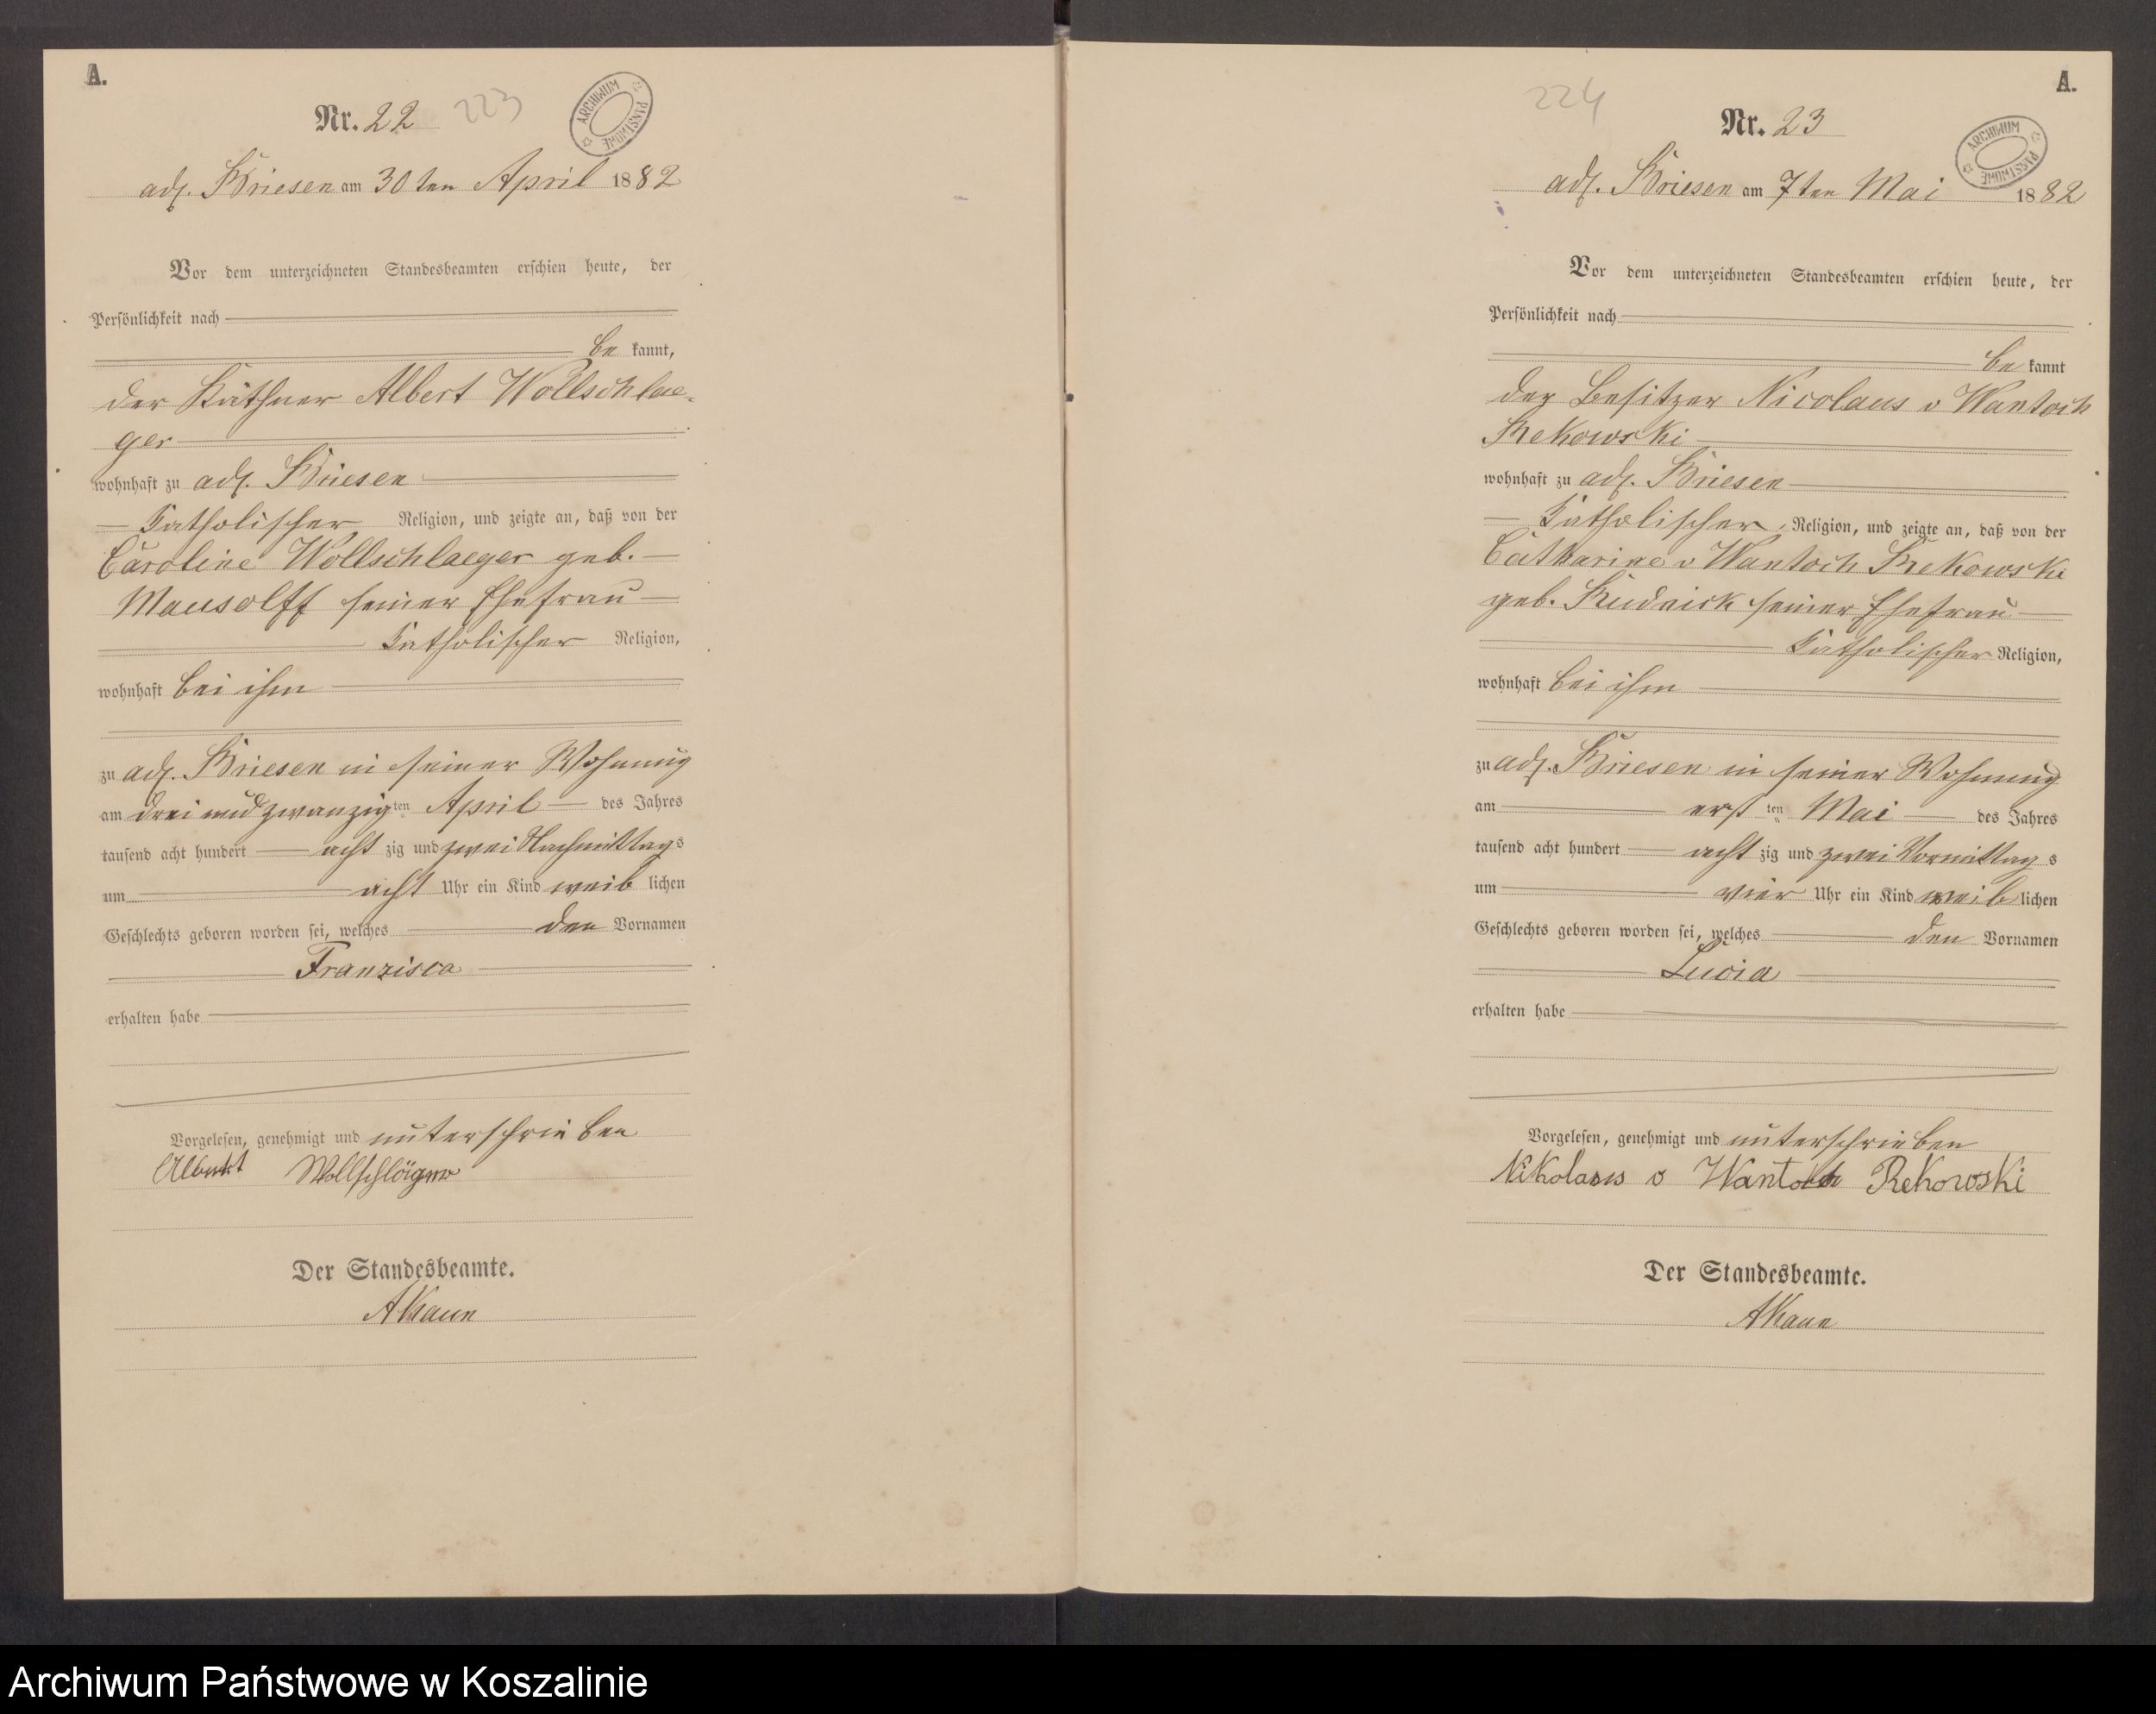 A.
Nr. 22 223
ARCHIWUM PAŃSTWOWE
adl. Briesen am 30ten April 1882
Vor dem unterzeichneten Standesbeamten erschien heute, der
Persönlichkeit nach
be kannt,
der Käthner Albert Wollschlae-
ger
wohnhaft zu adl. Briesen
katholischer Religion, und zeigte an, daß von der
Caroline Wollschlaeger geb.
Mausolff seiner Ehefrau
katholischer Religion,
wohnhaft bei ihm
zu adl. Briesen in seiner Wohnung
am drei und zwanzigten April des Jahres
tausend acht hundert acht zig und zwei Nachmittags
um acht Uhr ein Kind weib lichen
Geschlechts geboren worden sei, welches den Vornamen
Franzisca
erhalten habe
Vorgelesen, genehmigt und unterschrieben
Albert Wollschläger
Der Standesbeamte.
AKaun
A.
224
Nr. 23
ARCHIWUM PAŃSTWOWE
adl. Briesen am 7ten Mai 1882
Vor dem unterzeichneten Standesbeamten erschien heute, der
Persönlichkeit nach
be kannt
der Besitzer Nicolaus v Wantoch
Rekowski
wohnhaft zu adl. Briesen
katholischer Religion, und zeigte an, daß von der
Catharine v Wantoch Rekowski
geb. Rudnick seiner Ehefrau
katholischer Religion,
wohnhaft bei ihm
zu adl. Briesen in seiner Wohnung
am erst ten Mai des Jahres
tausend acht hundert acht zig und zwei Vormittag s
um vier Uhr ein Kind weib lichen
Geschlechts geboren worden sei, welches den Vornamen
Lucia
erhalten habe
Vorgelesen, genehmigt und unterschrieben
Nikolaus v Wantoch Rekowski
Der Standesbeamte.
AKaun
Archiwum Państwowe w Koszalinie